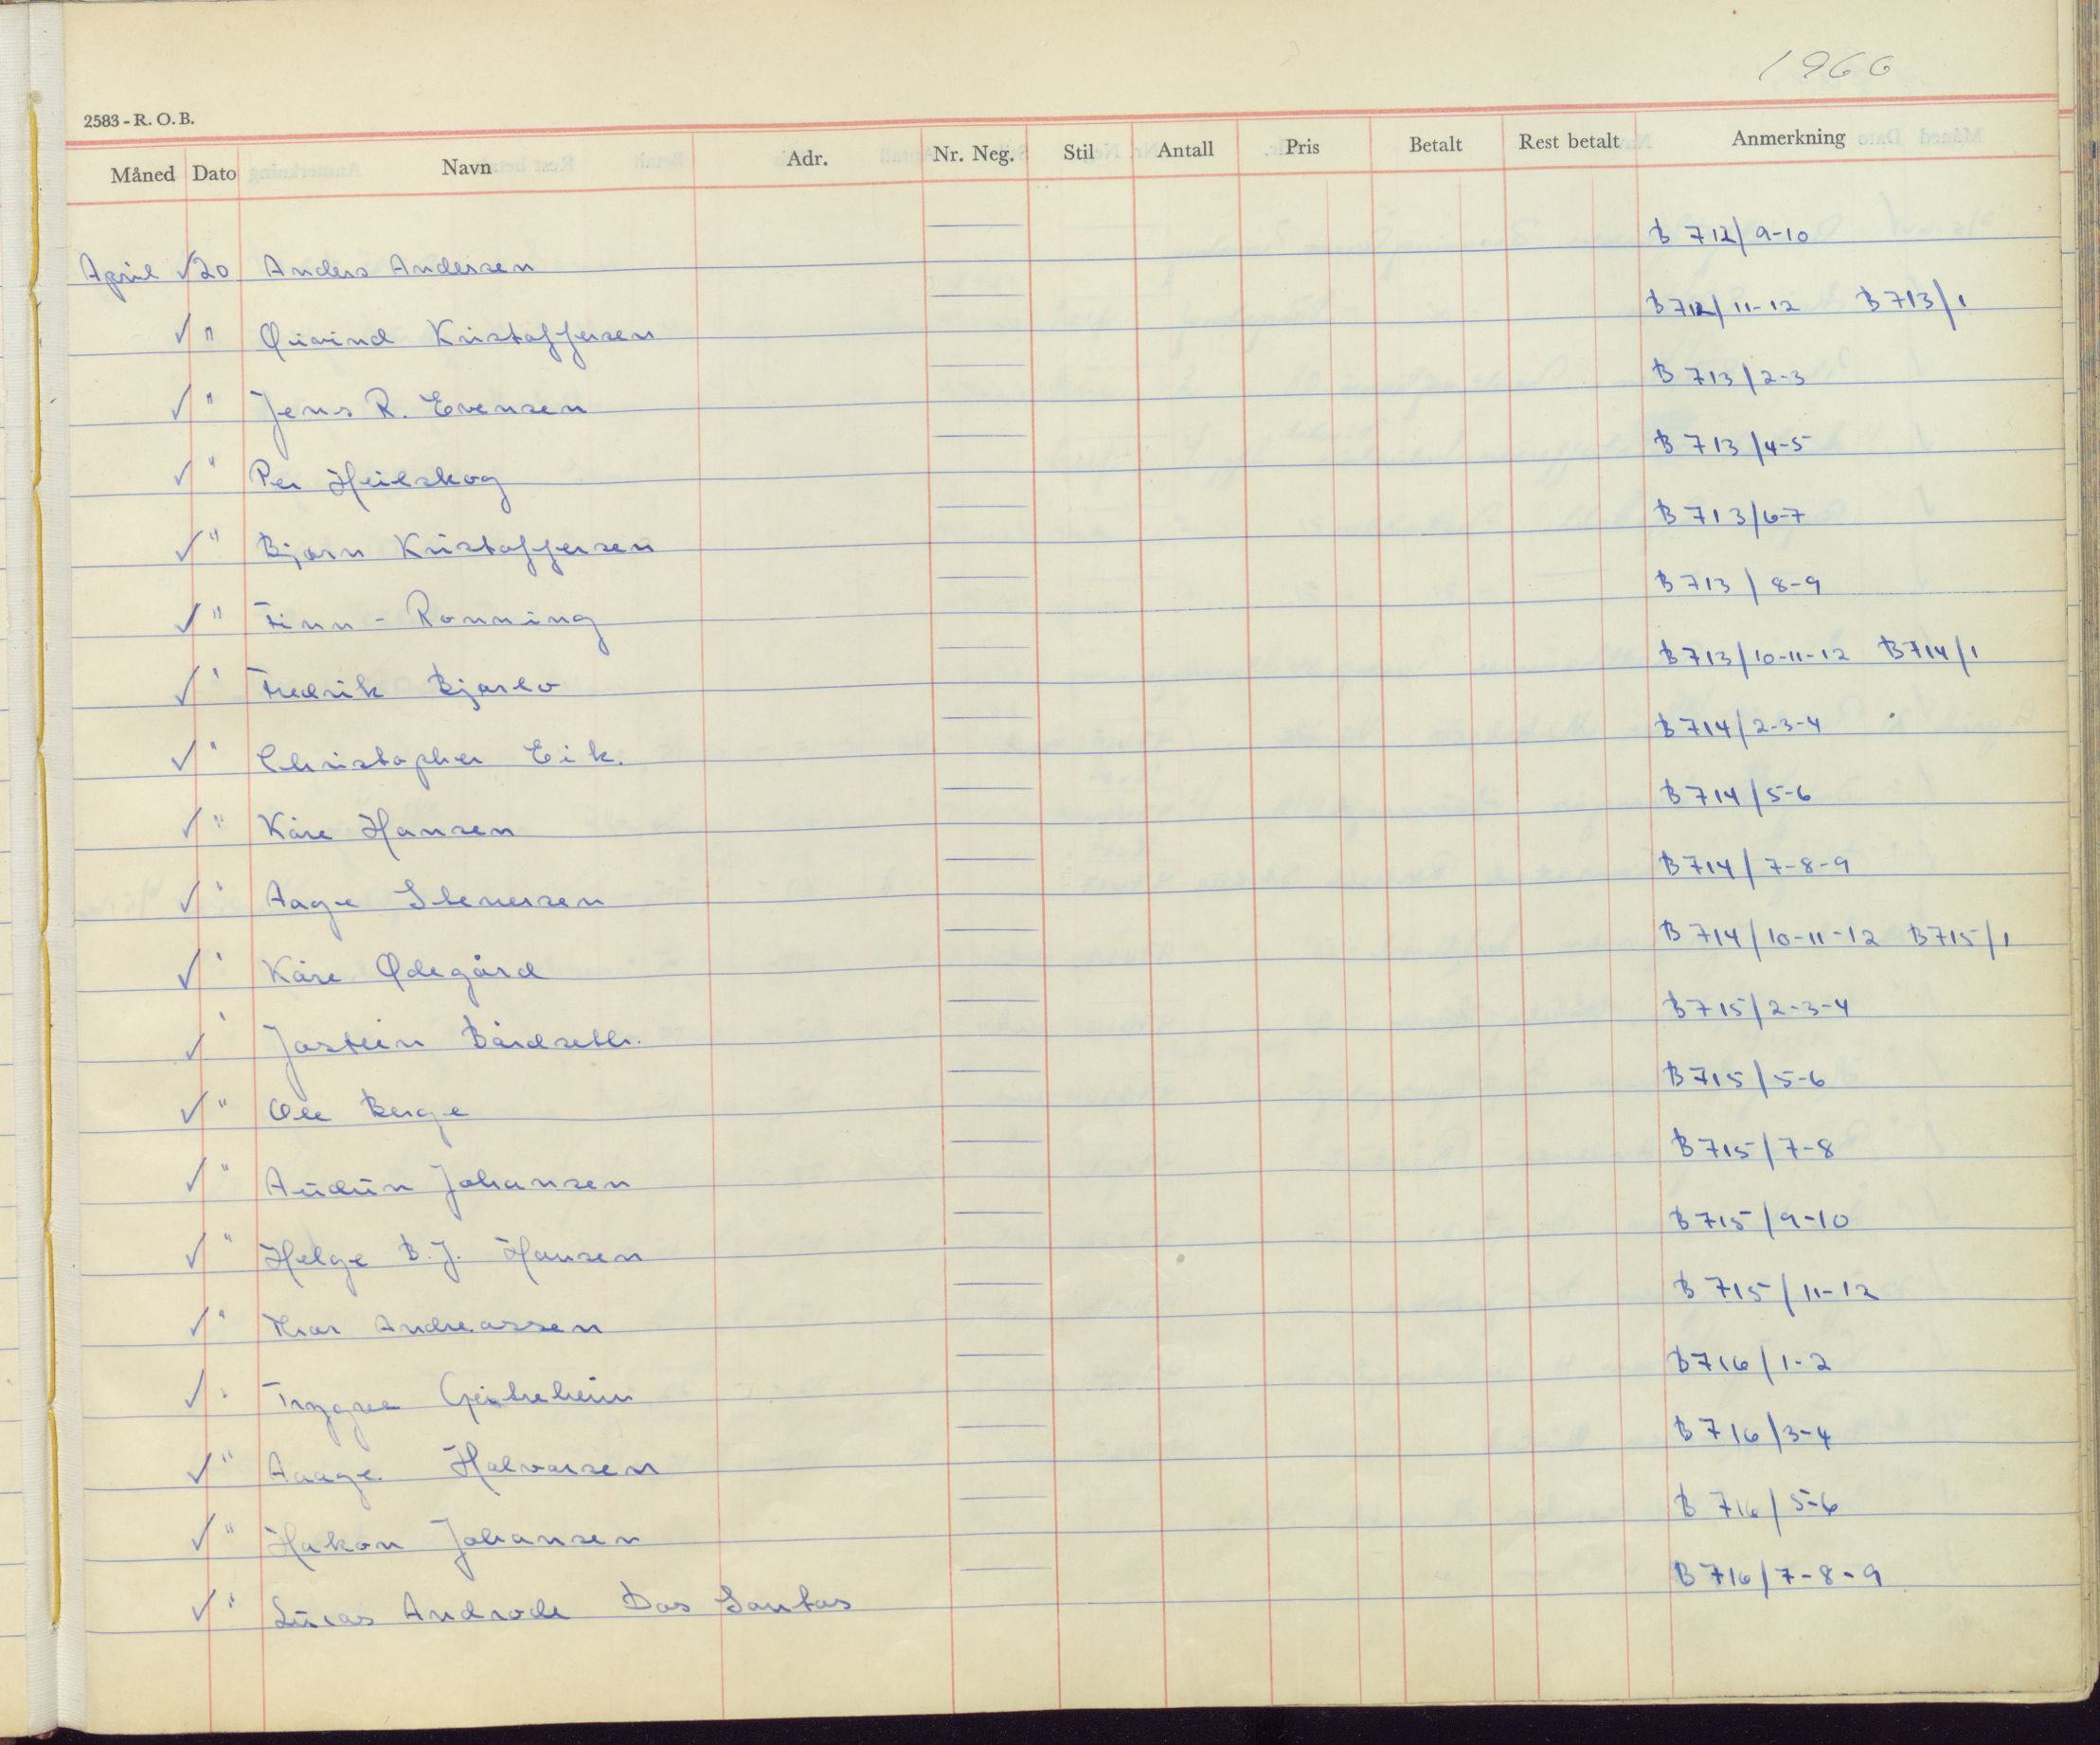 1966
2583 - R. O. B.
Måned Dato Navn Adr. Nr. Neg. Stil Antall Pris Betalt Rest betalt Anmerkning
April √ 20 Anders Andersen B 712/9-10
√ " Øivind Kristoffersen B 712/11-12 B 713/1
√ " Jens R. Evensen B 713/2-3
√ " Per Heilskog B 713/4-5
√ " Bjørn Kristoffersen B 713/6-7
√ " Finn - Rønning B 713/8-9
√ " Fredrik Bjørlo B 713/10-11-12 B 714/1
√ " Christopher Eik. B 714/2-3-4
√ " Kåre Hansen B 714/5-6
√ " Aage Stenersen B 714/7-8-9
√ " Kåre Ødegård B 714/10-11-12 B 715/1
√ " Jostein Bårdseth. B 715/2-3-4
√ " Ole Berge B 715/5-6
√ " Audun Johansen B 715/7-8
√ " Helge B.J. Hansen B 715/9-10
√ " Andreassen B 715/11-12
√ " Trygve B 716/1-2
√ " Aaage Halvorsen B 716/3-4
√ " Hakon Johansen B 716/5-6
√ " Lucas Androde Dos Santos B 716/7-8-9